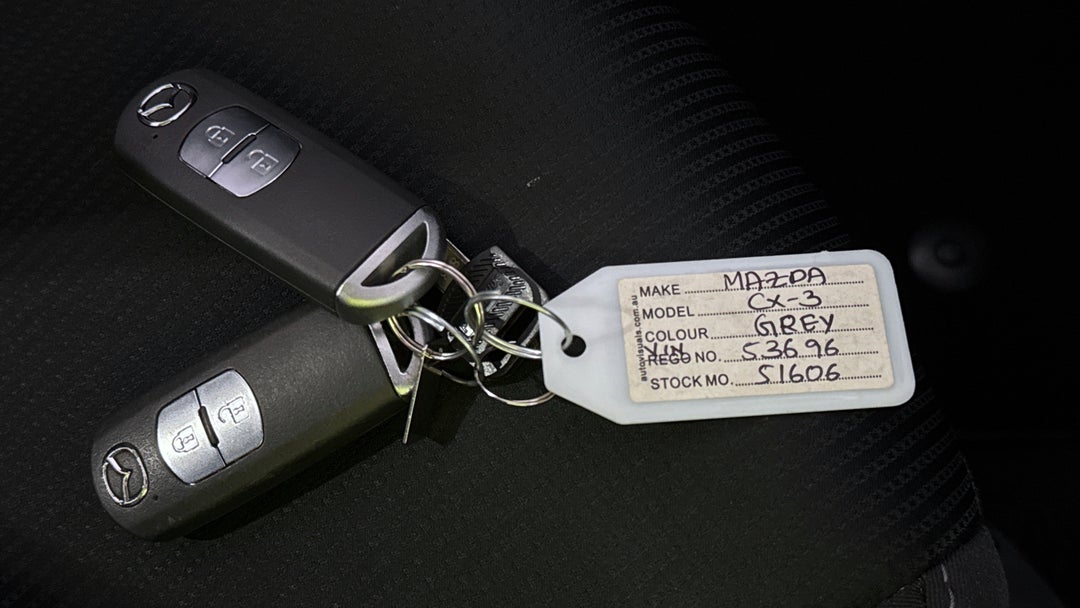 MAKE MAZDA
MODEL CX-3
COLOUR GREY
VIN
REGO NO. 53696
STOCK MO. 51606
autovisuals.com.au